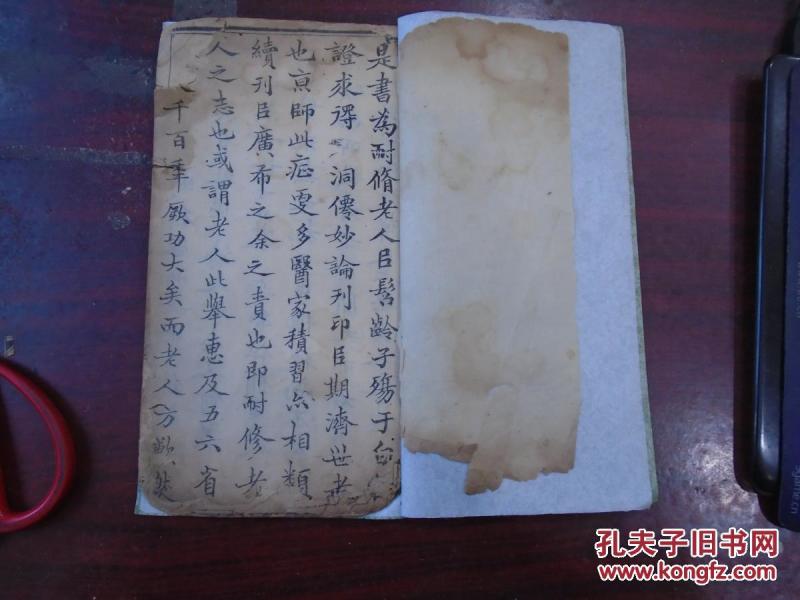 是書為耐脩老人㠯髫齡子殤于白
證求得 洞僊妙論刊印㠯期濟世者
也京師此症更多醫家積習亦相類
續刊㠯廣布之余之責也即耐修老
人之志也或謂老人此舉惠及五六省
千百年厥功大矣而老人方
孔夫子旧书网
www.kongfz.com